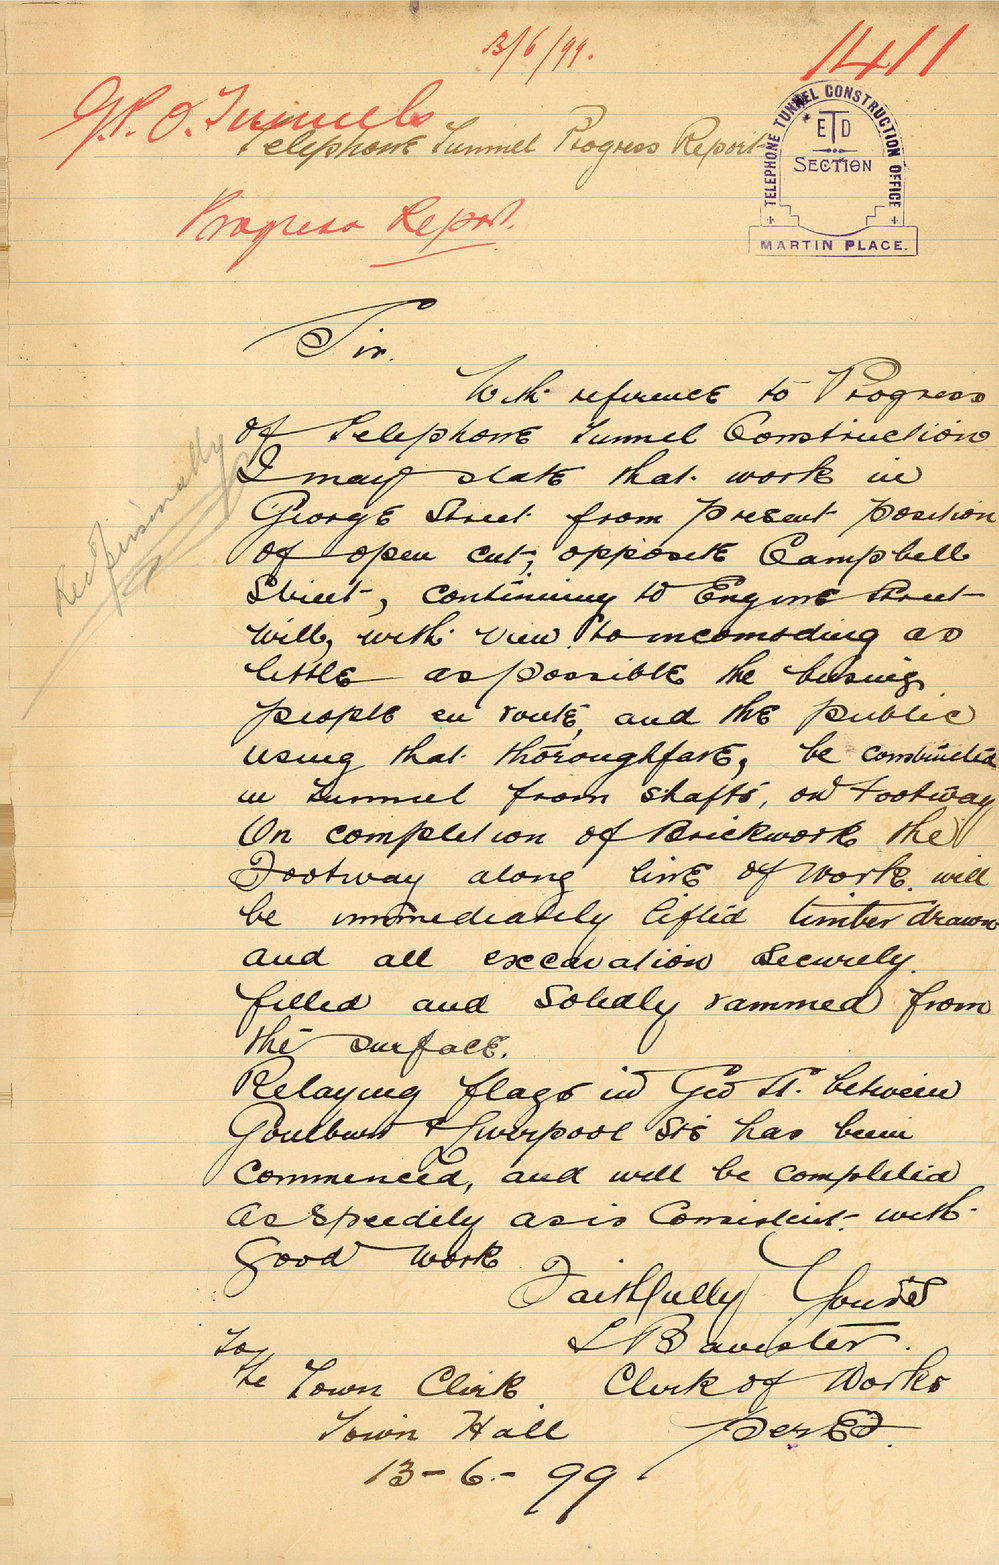 13/6/99.
1411
G.P.O. Tunnels
Telephone Tunnel Progress Report
Progress Report.
TELEPHONE TUNNEL CONSTRUCTION OFFICE
ETD
SECTION
MARTIN PLACE.
Sir.
With reference to Progress
of Telephone Tunnel Construction
I may state that work in
George Street from present position
of open cut, opposite Campbell
Street, continuing to Engine Street
will, with view to incomoding as
little as possible the business
people en route, and the public
using that thoroughfare, be constructed
in tunnel from shafts, on Footway
On completion of Brickwork the
Footway along line of work will
be immediately lifted timber drawn
and all excavation securely
filled and solidly rammed from
the surface.
Relaying flags in Geo St. between
Goulburn & Liverpool Sts has been
commenced, and will be completed
as speedily as is consistent with
good work
Faithfully Yours
Bavister.
To
the Town Clerk
Clerk of Works
Town Hall
per
13-6-99